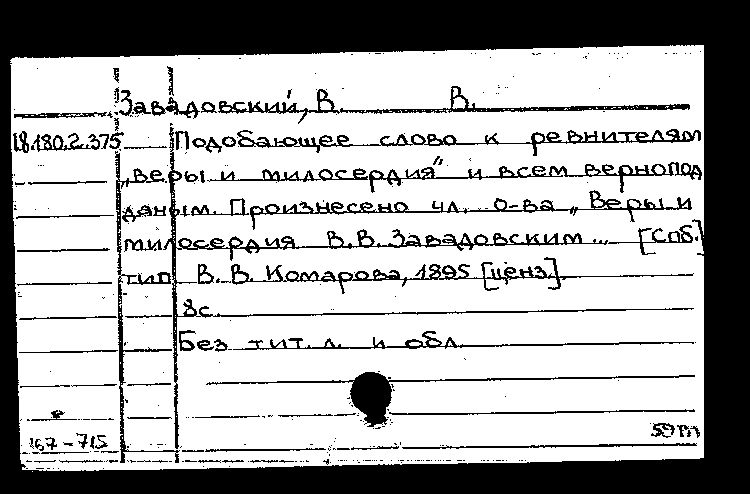 Завадовский, В. В.
18.180.2.375 Подобающее слово к ревнителям
„веры и милосердия" и всем вернопод
даным. Произнесено чл. о-ва „Веры и
милосердия В.В. Завадовским... [Спб.]
тип В. В. Комарова, 1895 [ценз.].
8с.
Без тит. л. и обл.
167-715